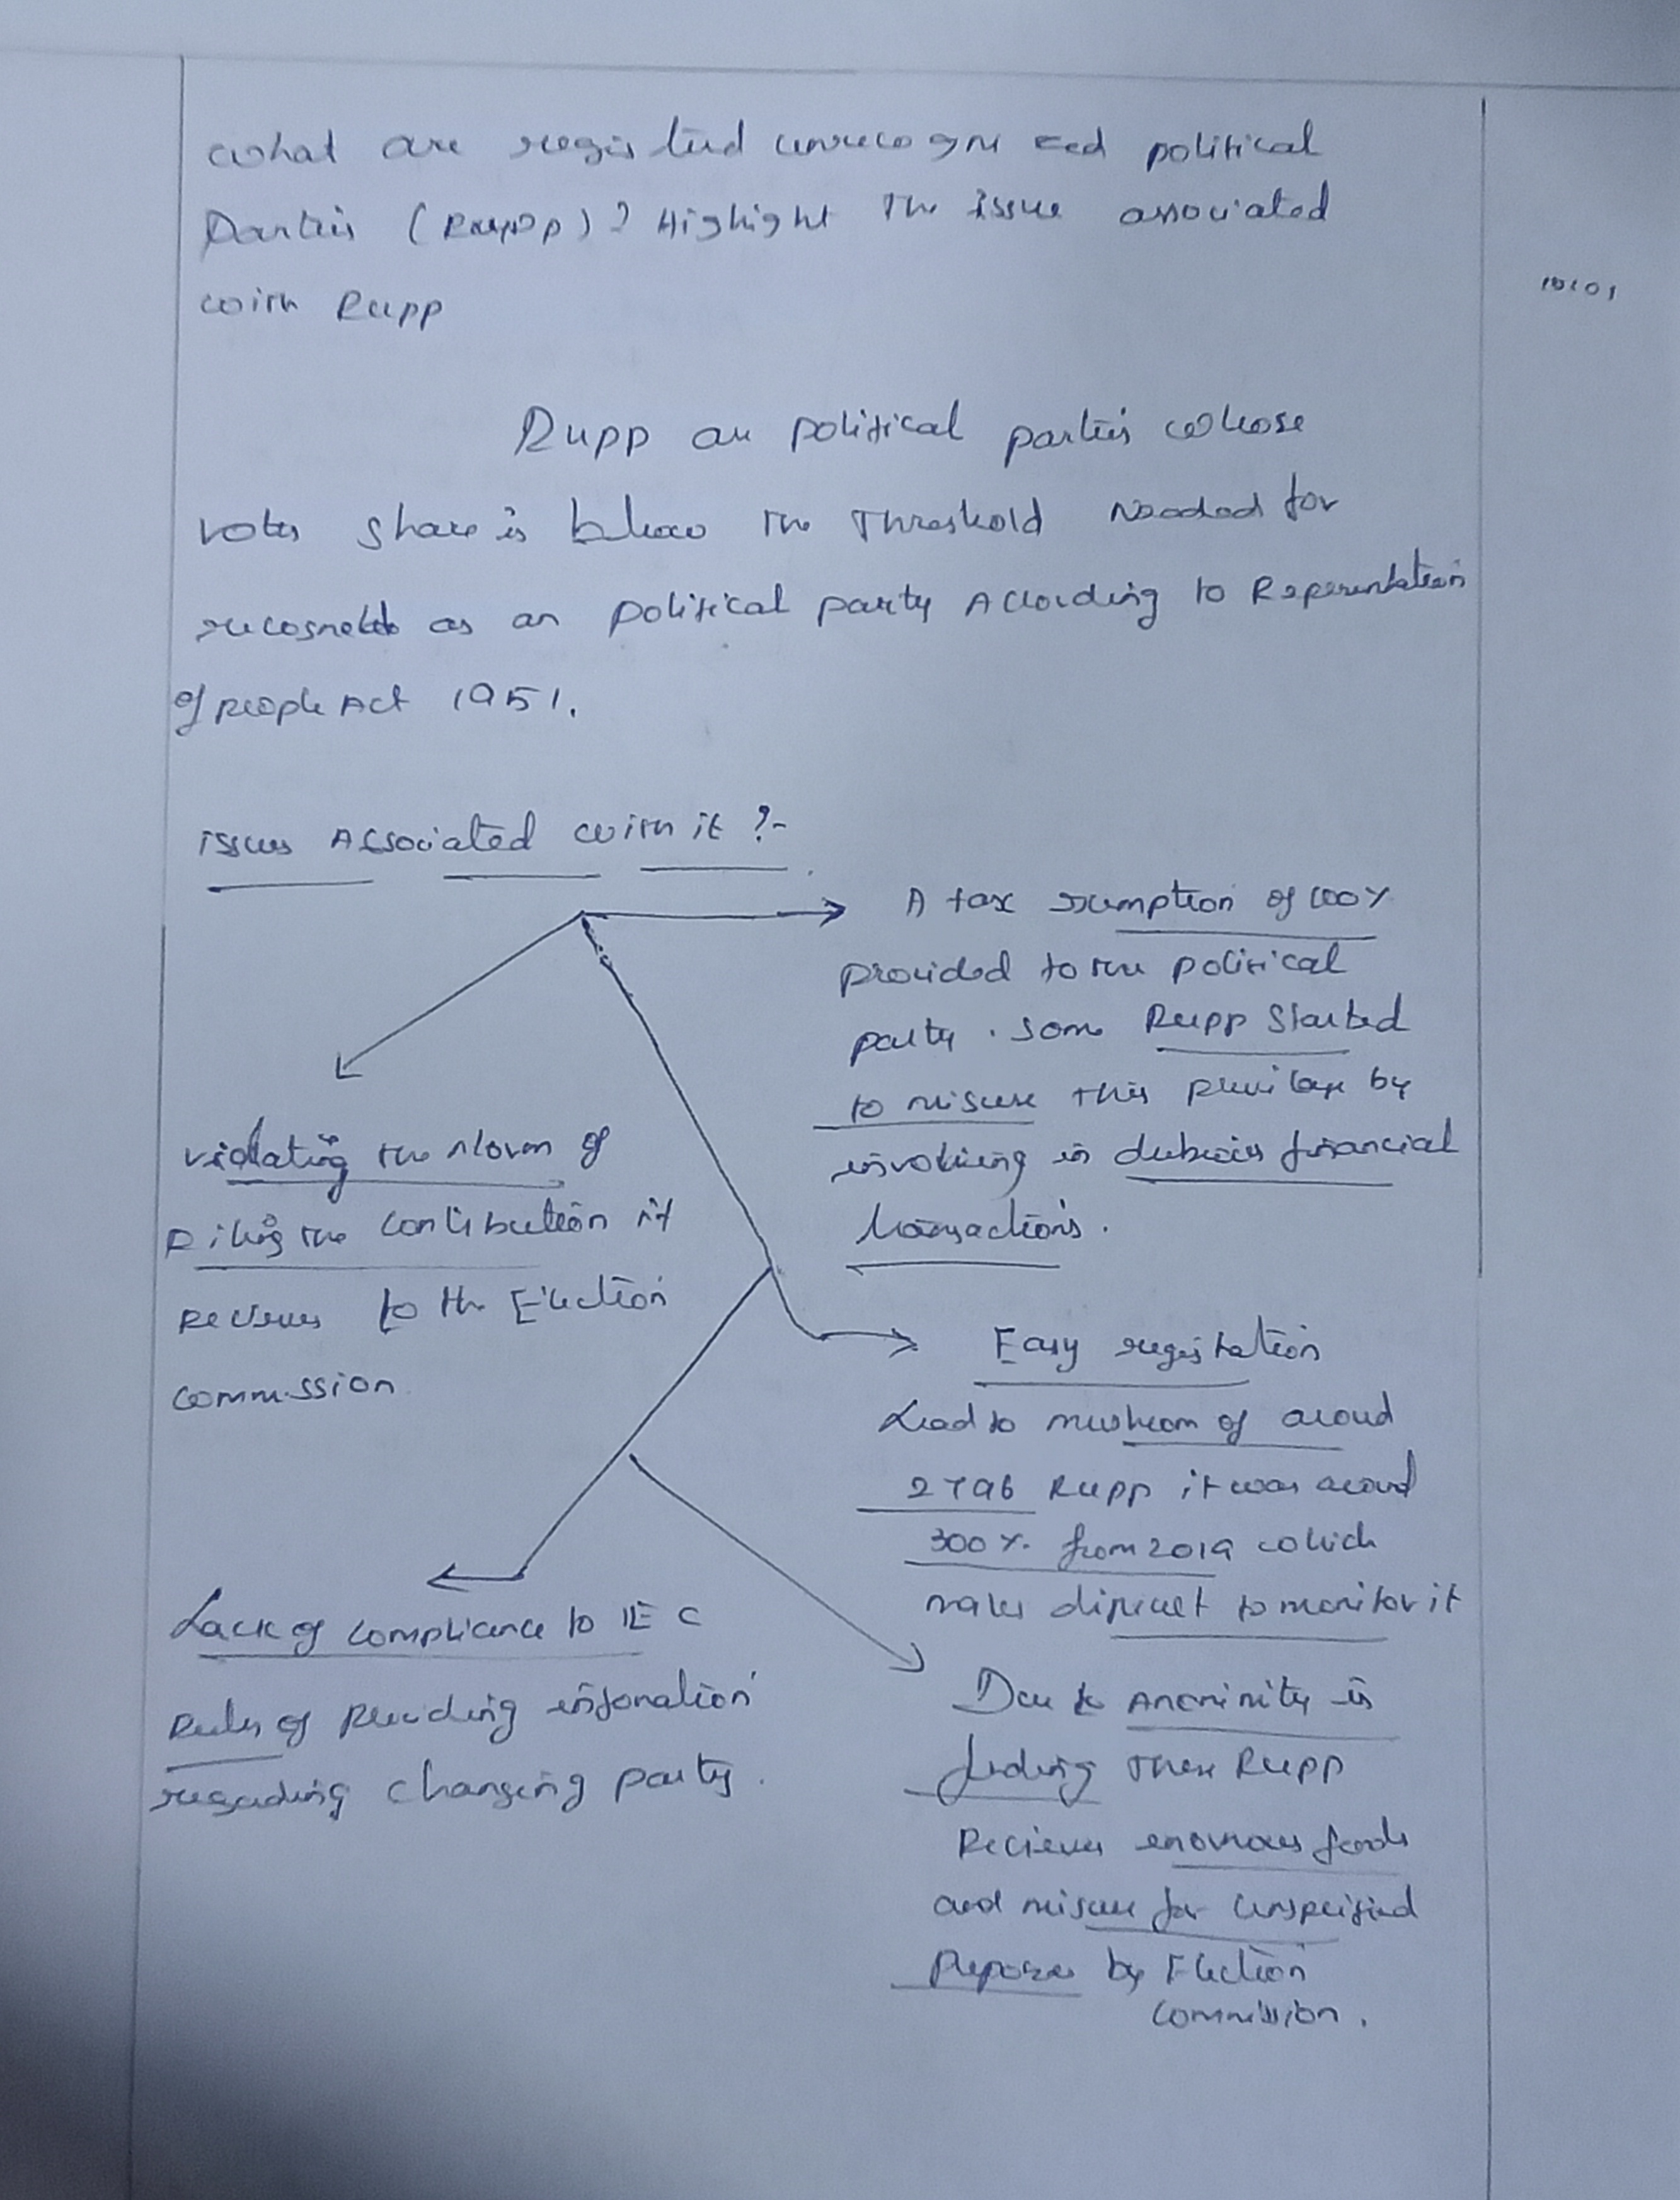 what are registerd unrecognized political
Parties (Rupp)? Highight The issue associated
with Rupp
10:01
Rupp are political parties whose
votes share is below the Threshold Needed for
as an political party According to Represntation
of people Act 1951.
issues Associated with it ?-
A tax exemption of 100%
provided to the political
party. Some Rupp Started
to misuse this privilage by
involving in dubious financial
transactions.
violating the Norm of
filing the contribution it
recieves to the Election
commission
Easy registration
Lead to mushrom of aroud
2796 Rupp it was around
300% from 2019 which
makes dificult to monitor it
Lack of compliance to EC
Rules of providing information
regarding changing party.
Due to Anonimity in
funding These Rupp
Recieves enormous funds
and misuse for unspecified
Purposes by Election
commission.